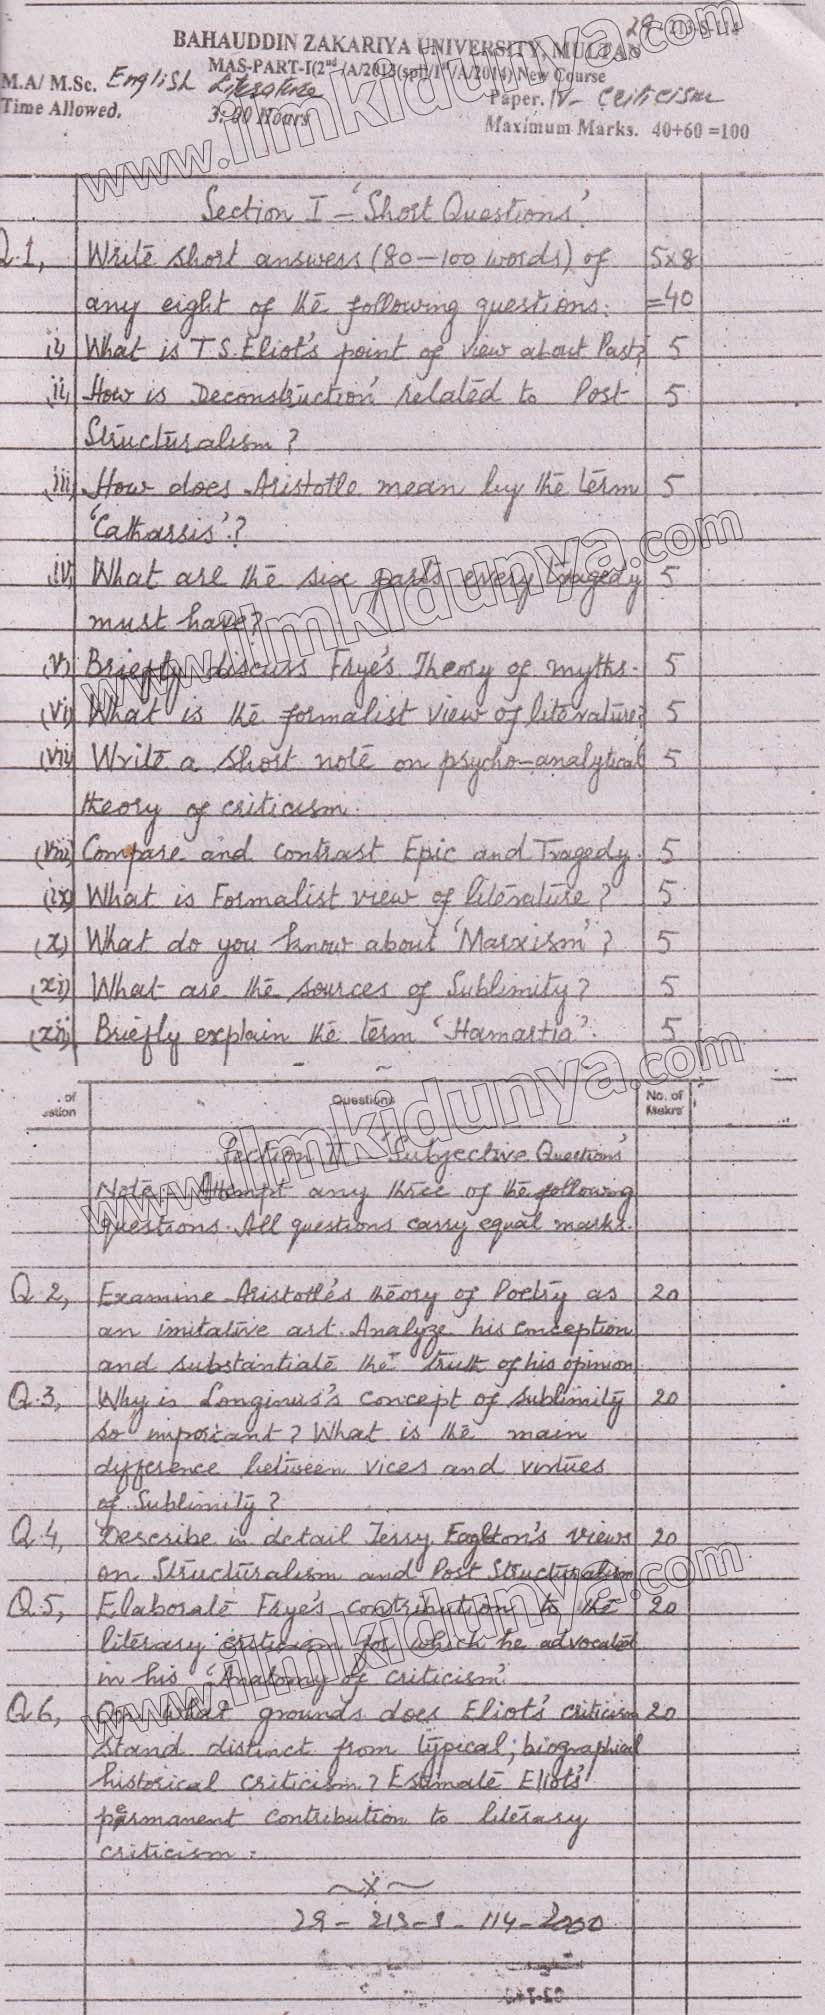 29-213-S-114
BAHAUDDIN ZAKARIYA UNIVERSITY, MULTAN
MAS-PART-I(2nd /A/2013(spl)/1st/A/2014) New Course
M.A/ M.Sc. English Literature
Paper. IV- Criticism
Time Allowed. 3:00 Hours
Maximum Marks. 40+60 =100
Section I - 'Short Questions'
Q.1, Write short answers (80-100 words) of 5x8
any eight of the following questions: =40
i) What is T.S. Eliot's point of view about Past? 5
ii) How is 'Deconstruction' related to Post 5
Structuralism?
iii) How does Aristotle mean by the term 5
'Catharsis'?
iv) What are the six parts every tragedy 5
must have?
(v) Briefly discuss Frye's Theory of myths. 5
(vi) What is the formalist view of literature? 5
(vii) Write a short note on psycho-analytical 5
theory of criticism.
(viii) Compare and contrast Epic and Tragedy. 5
(ix) What is Formalist view of literature? 5
(x) What do you know about 'Marxism'? 5
(xi) What are the sources of Sublimity? 5
(xii) Briefly explain the term 'Hamartia'. 5
of
stion Questions No. of
Makrs
Section II - 'Subjective Questions'
Note Attempt any three of the following
questions. All questions carry equal marks.
Q.2, Examine Aristotle's theory of Poetry as 20
an imitative art. Analyze his conception
and substantiate the truth of his opinion
Q.3, Why is Longinus's concept of sublimity 20
so important? What is the main
difference between vices and virtues
of Sublimity?
Q.4, Describe in detail Terry Eaglton's views 20
on Structuralism and Post Structuralism
Q.5, Elaborate Frye's contribution to the 20
literary criticism for which he advocated
in his 'Anatomy of criticism'.
Q.6, On what grounds does Eliot's criticism 20
stand distinct from typical, biographical
historical criticism? Estimate Eliot's
permanent contribution to literary
criticism.
~x~
29-213-S-114-2000
www.ilmkidunya.com
www.ilmkidunya.com
www.ilmkidunya.com
www.ilmkidunya.com